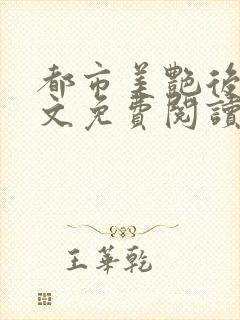 都市美艷後
文免費閱讀
王華乾